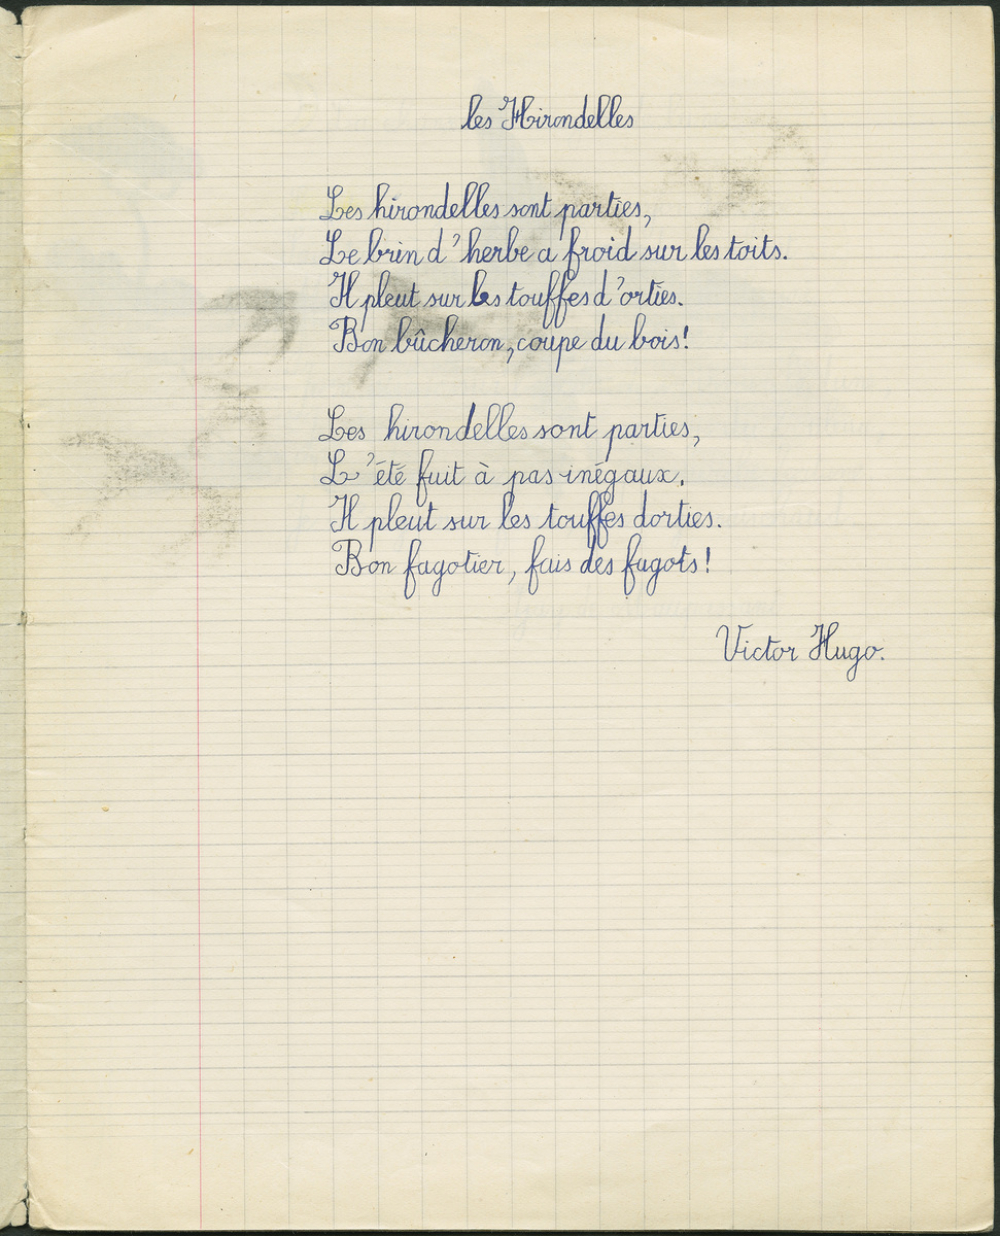 les Hirondelles
Les hirondelles sont parties,
Le brin d'herbe a froid sur les toits.
Il pleut sur les touffes d'orties.
Bon bûcheron, coupe du bois!
Les hirondelles sont parties,
L'été fuit à pas inégaux.
Il pleut sur les touffes dorties.
Bon fagotier, fais des fagots!
Victor Hugo.